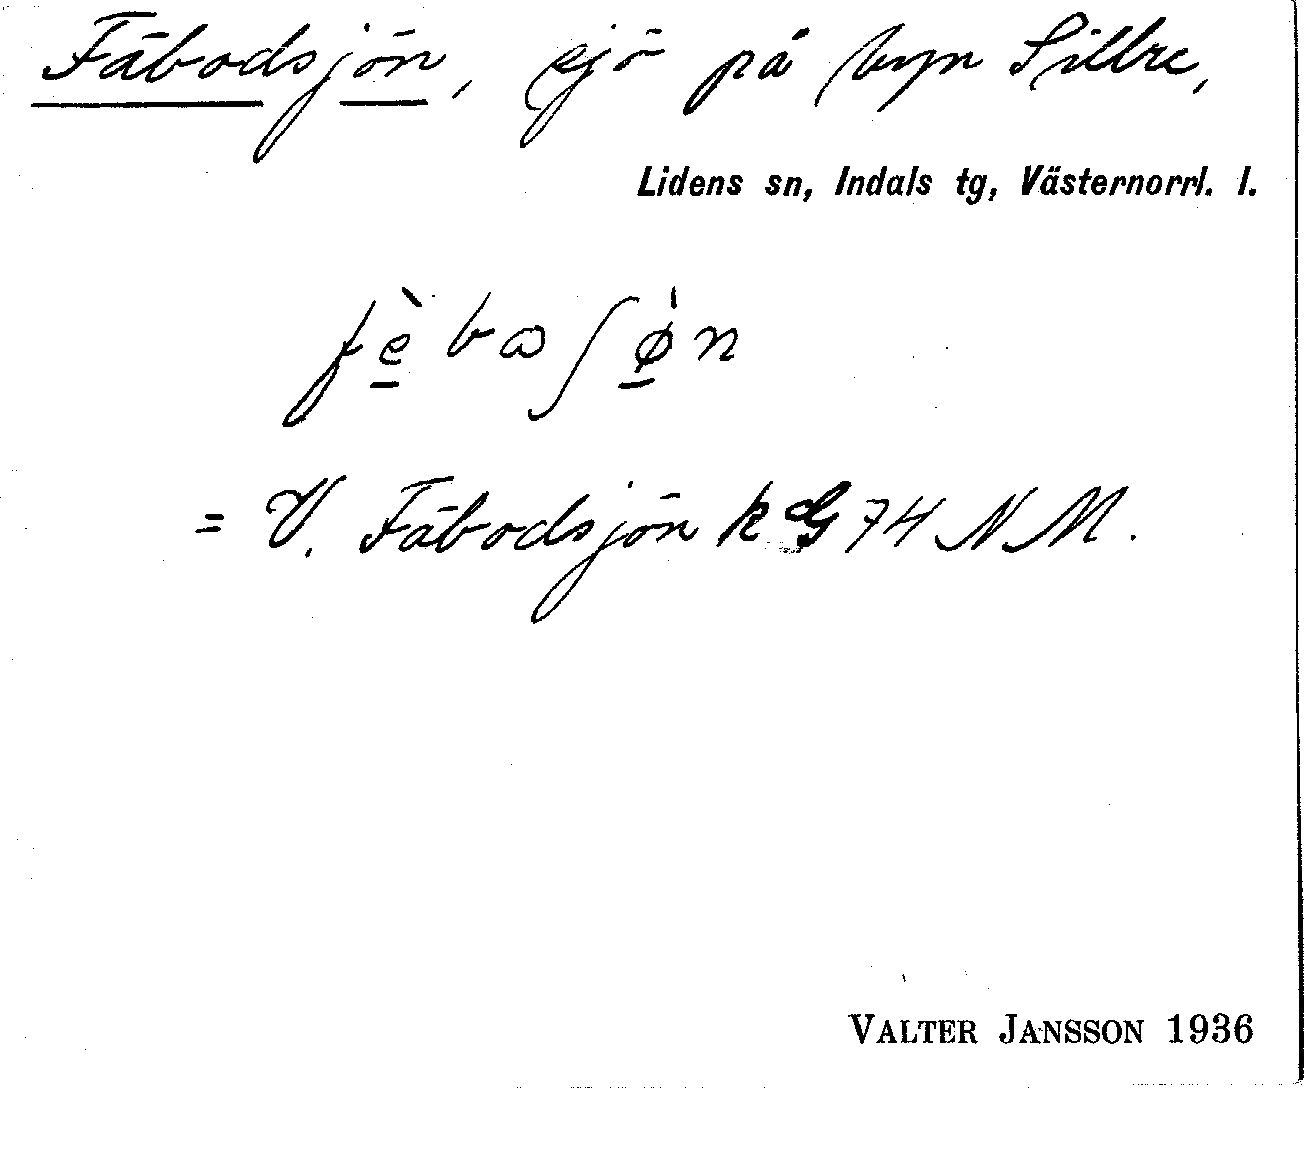 Fäbodsjön, sjö på byn Sillre,
Lidens sn, Indals tg, Västernorrl. l.
fè̱bɷʃø̱̀n
= V. Fäbodsjön k G 74 N M.
VALTER JANSSON 1936